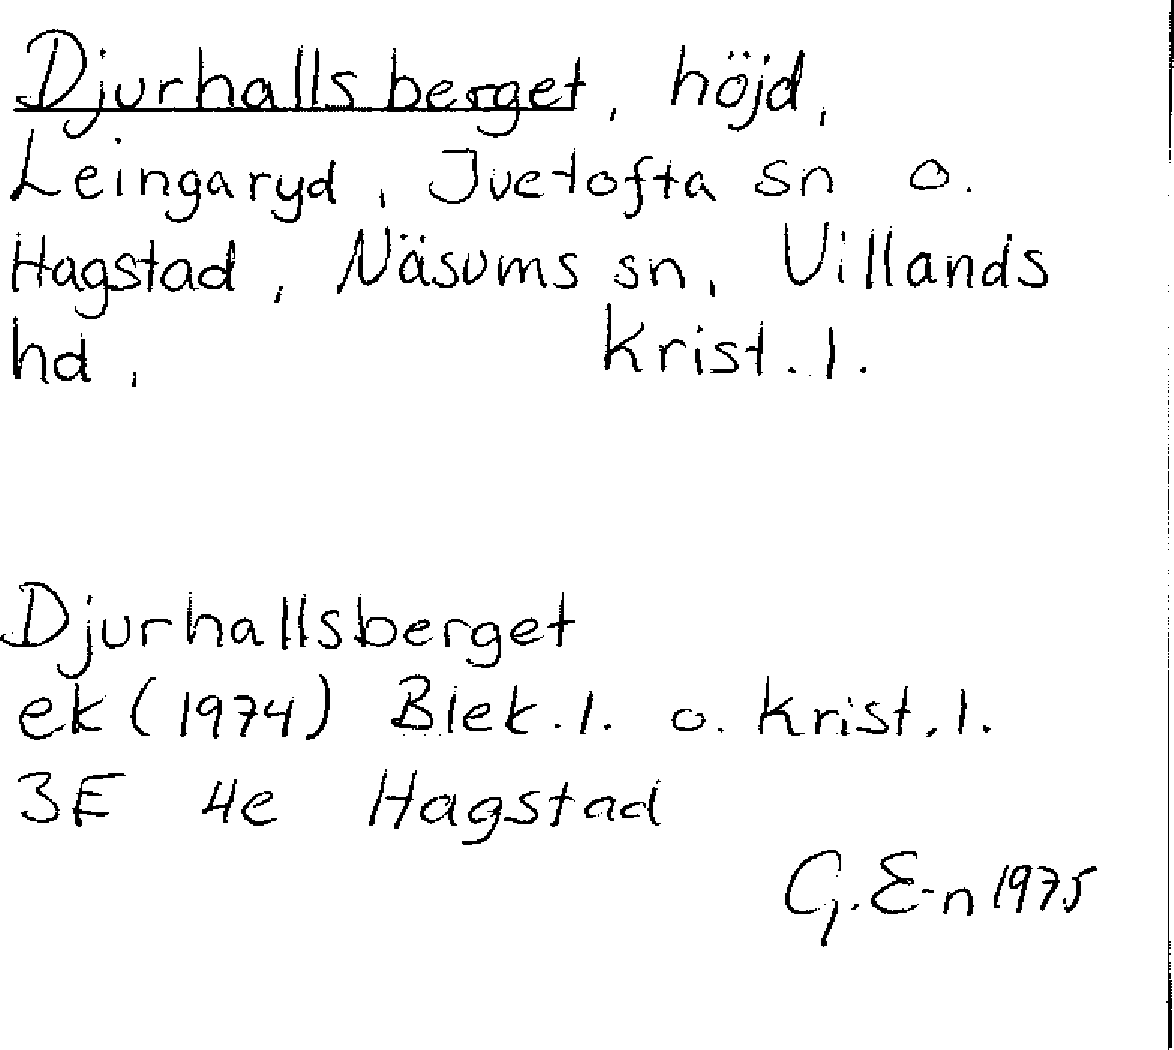 Djurhallsberget, höjd,
Leingaryd, Ivetofta sn o.
Hagstad, Näsums sn, Villands
hd, Krist. l.
Djurhallsberget
ek (1974) Blek. l. o. Krist. l.
3E 4e Hagstad
G. E-n 1975